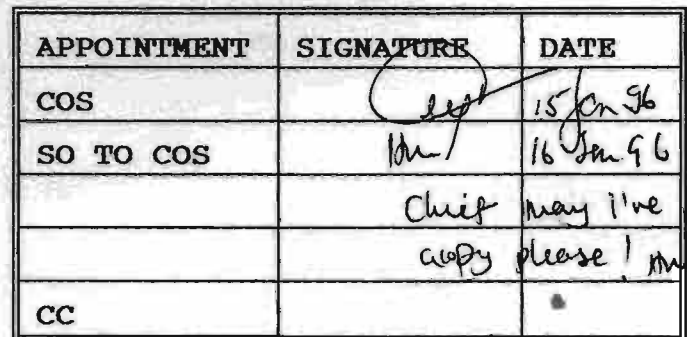 APPOINTMENT SIGNATURE DATE
COS 15 Jan 96
SO TO COS 16 Jan 96
Chief may I've
copy please!
CC